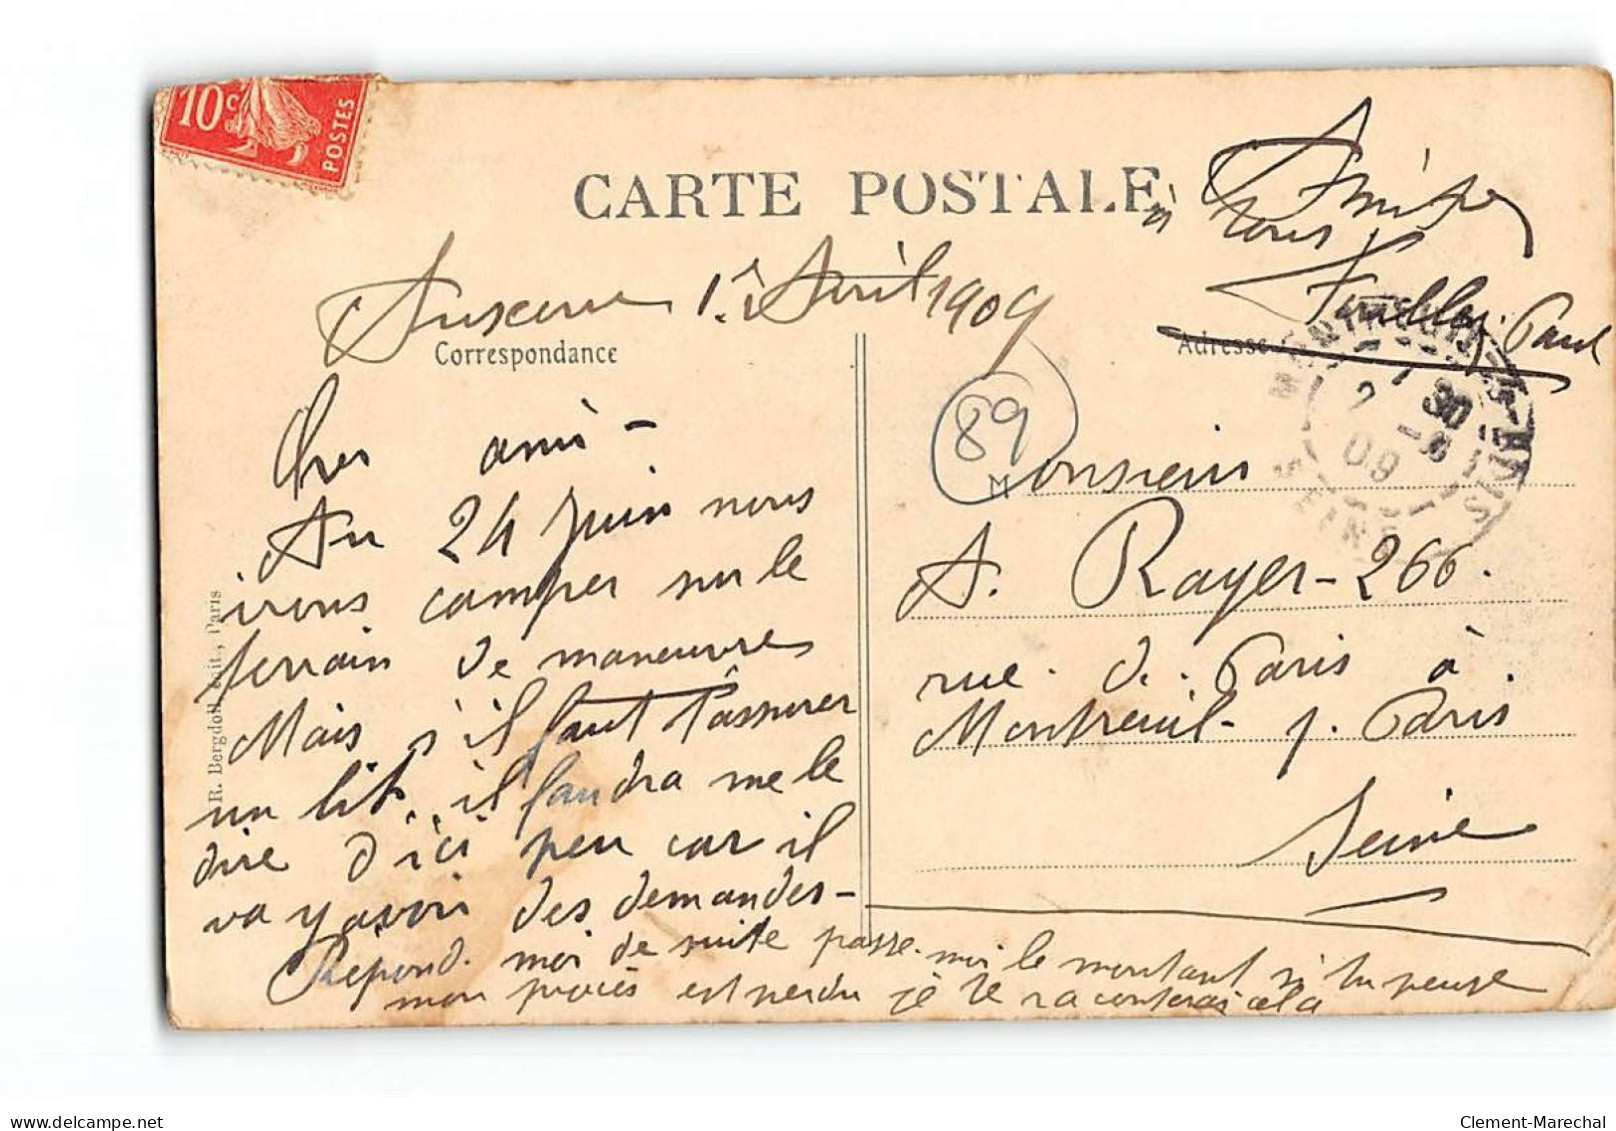 10c
POSTES
CARTE POSTALE
Amitiés
à tous
Paul
Auxerre 1er Avril 1909
Correspondance
Adresse
89
Cher ami -
Au 24 juin nous
irons camper sur le
terrain de manœuvres
Mais s'il faut t'assurer
un lit, il faudra me le
dire d'ici peu car il
va y avoir des demandes -
Répond moi de suite passe-moi le montant si tu peux
mon procès est perdu je te raconterai cela
Monsieur
A. Rayer - 266.
rue de Paris à
Montreuil s. Paris
Seine
MONTREUIL-S-BOIS
7 30
2 - 4
09
SEINE
R. Bergdoll, édit., Paris
Clement-Marechal